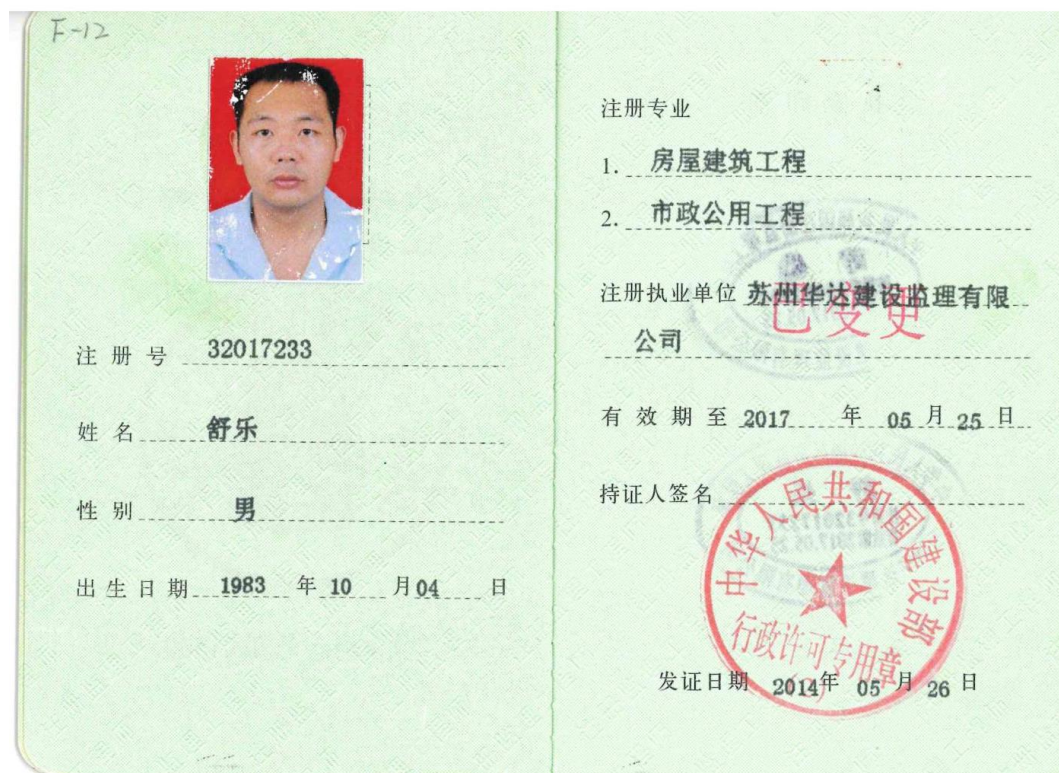 F-12
注册号 32017233
姓名 舒乐
性别 男
出生日期 1983 年 10 月 04 日
注册专业
1. 房屋建筑工程
2. 市政公用工程
注册执业单位 苏州华达建设监理有限
公司
已变更
有效期至 2017 年 05 月 25 日
持证人签名
中华人民共和国建设部
行政许可专用章
发证日期 2014 年 05 月 26 日